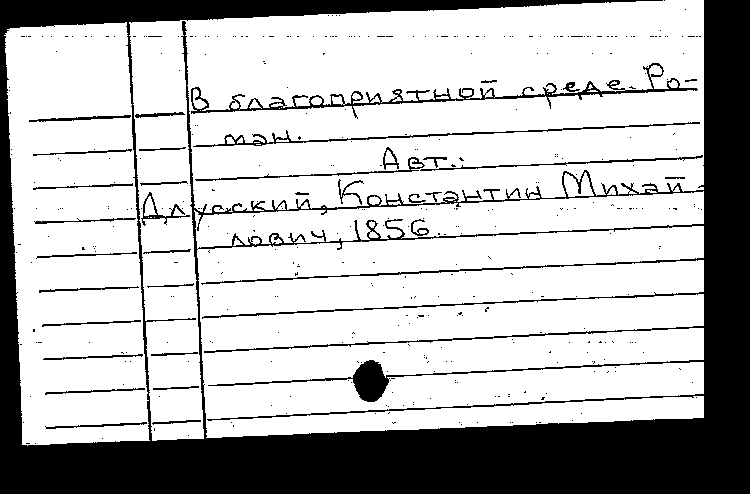 В благоприятной среде. Ро-
ман.
Авт.:
Длусский, Константин Михай-
лович, 1856